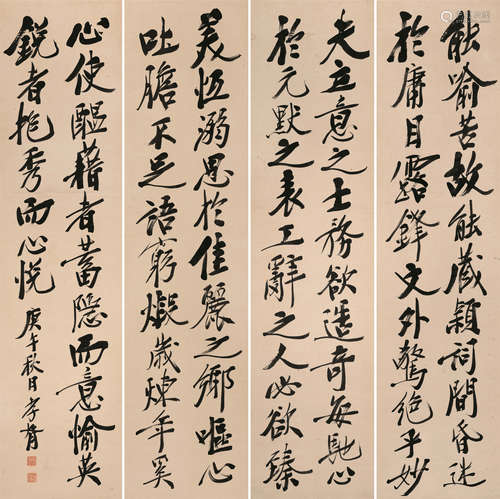 能喻苦故能藏穎詞間昏迷
於庸目露鋒文外驚絕乎妙
夫立意之士務欲造奇每馳心
於元默之表工辭之人必欲臻
美恆溺思於佳麗之鄉嘔心
吐膽不足語窮煅歲煉年奚
心使醞藉者蓄隱而意愉英
銳者抱秀而心悅
庚午秋日孝胥